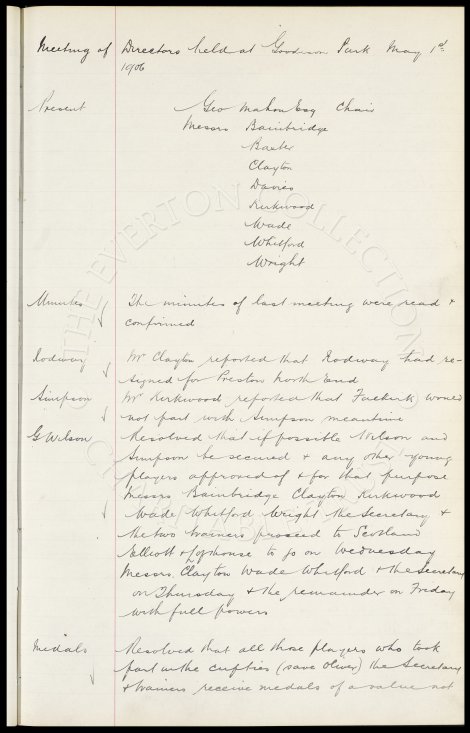 Meeting of Directors held at Goodison Park May 1st
1906
Present Geo Mahon Esq Chair
Messrs Bainbridge
Baxter
Clayton
Davies
Kirkwood
Wade
Whitford
Wright
Minutes The minutes of last meeting were read &
confirmed
Rodway Mr Clayton reported that Rodway had re-
signed for Preston North End
Simpson Mr Kirkwood reported that Falkirk would
not part with Simpson meantime
G Wilson Resolved that if possible Wilson and
Simpson be secured & any other young
players approved of & for that purpose
Messrs Bainbridge Clayton Kirkwood
Wade Whitford Wright the Secretary &
the two trainers proceed to Scotland
Elliott & to go on Wednesday
Messrs Clayton Wade Whitford & the Secretary
on Thursday & the remainder on Friday
with full powers
Medals Resolved that all those players who took
part in the cupties (save Oliver) the Secretary
& trainers receive medals of a value not
THE EVERTON COLLECTION